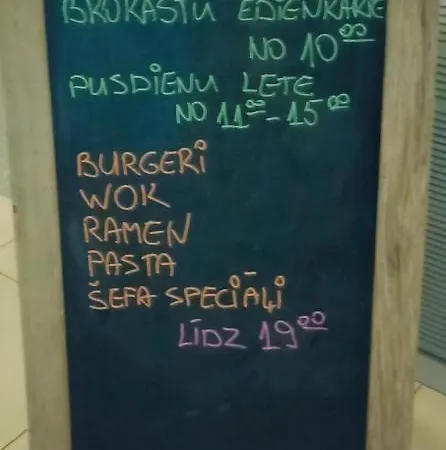 BROKASTU EDIENKARTE
NO 10⁰⁰
PUSDIENU LETE
NO 11⁰⁰-15⁰⁰
BURGERI
WOK
RAMEN
PASTA
ŠEFA SPECIĀĻI
LĪDZ 19⁰⁰